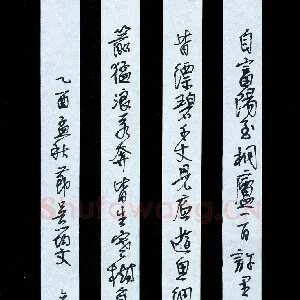 自富陽至桐廬一百許里
皆縹碧千丈見底遊魚細
箭猛浪若奔皆生寒樹
乙酉孟秋節吴均文